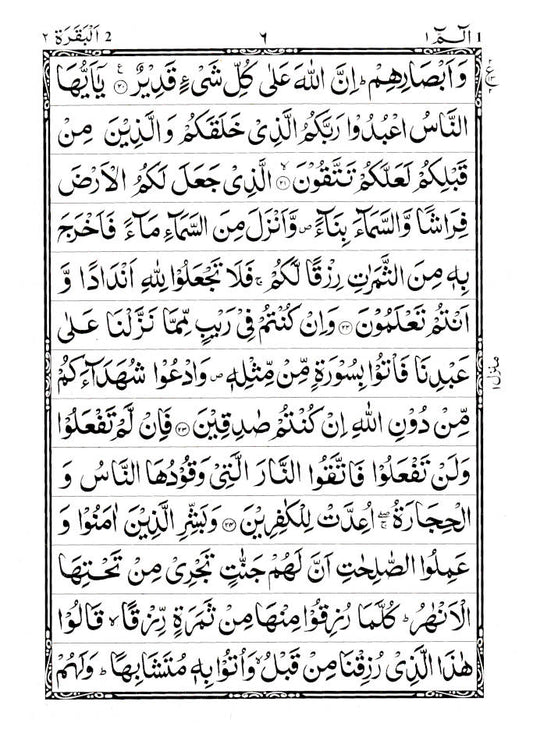 الٓـمّٓ ١ 1 ٦ اَلْبَقَرَة ٢ 2
وَاَبْصَارِهِمْ ؕ اِنَّ اللّٰهَ عَلٰى كُلِّ شَىْءٍ قَدِيْرٌ ﴿۲۰﴾ يٰۤاَيُّهَا
النَّاسُ اعْبُدُوْا رَبَّكُمُ الَّذِىْ خَلَقَكُمْ وَالَّذِيْنَ مِنْ
قَبْلِكُمْ لَعَلَّكُمْ تَتَّقُوْنَ ۙ﴿۲۱﴾ الَّذِىْ جَعَلَ لَكُمُ الْاَرْضَ
فِرَاشًا وَّالسَّمَآءَ بِنَآءً ۪ وَّاَنْزَلَ مِنَ السَّمَآءِ مَآءً فَاَخْرَجَ
بِهٖ مِنَ الثَّمَرٰتِ رِزْقًا لَّكُمْ ۚ فَلَا تَجْعَلُوْا لِلّٰهِ اَنْدَادًا وَّ
اَنْتُمْ تَعْلَمُوْنَ ﴿۲۲﴾ وَاِنْ كُنْتُمْ فِىْ رَيْبٍ مِّمَّا نَزَّلْنَا عَلٰى
عَبْدِنَا فَاْتُوْا بِسُوْرَةٍ مِّنْ مِّثْلِهٖ ۪ وَادْعُوْا شُهَدَآءَكُمْ
مِّنْ دُوْنِ اللّٰهِ اِنْ كُنْتُمْ صٰدِقِيْنَ ﴿۲۳﴾ فَاِنْ لَّمْ تَفْعَلُوْا
وَلَنْ تَفْعَلُوْا فَاتَّقُوا النَّارَ الَّتِىْ وَقُوْدُهَا النَّاسُ وَ
الْحِجَارَةُ ۖۚ اُعِدَّتْ لِلْكٰفِرِيْنَ ﴿۲۴﴾ وَبَشِّرِ الَّذِيْنَ اٰمَنُوْا وَ
عَمِلُوا الصّٰلِحٰتِ اَنَّ لَهُمْ جَنّٰتٍ تَجْرِىْ مِنْ تَحْتِهَا
الْاَنْهٰرُ ؕ كُلَّمَا رُزِقُوْا مِنْهَا مِنْ ثَمَرَةٍ رِّزْقًا ۙ قَالُوْا
هٰذَا الَّذِىْ رُزِقْنَا مِنْ قَبْلُ ۙ وَاُتُوْا بِهٖ مُتَشَابِهًا ؕ وَلَهُمْ
منزل ١